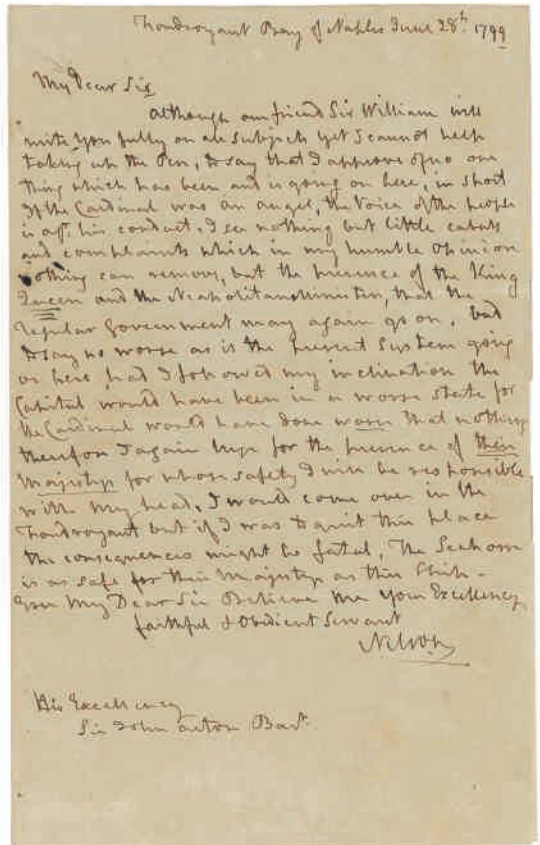 Foudroyant Bay of Naples June 28th. 1799
My Dear Sir
Although our friend Sir William will
write you fully on all subjects yet I cannot help
taking up the Pen, to say that I approve of no one
thing which has been and is going on here, in short
if the Cardinal was an angel, the voice of the people
is agt. his conduct. I see nothing but little cabals
and complaints which in my humble opinion
nothing can remove, but the presence of the King
Queen and the Neapolitan Minister, that the
regular Government may again go on, bad
to say no worse as is the present system going
on here had I followed my inclination the
Capital would have been in a worse state for
the Cardinal would have done worse that nothing
therefore I again urge for the presence of their
Majestys for whose safety I will be responsible
with my head, I would come over in the
Foudroyant but if I was to quit this place
the consequences might be fatal, The Seahorse
is as safe for their Majestys as this Ship -
Ever My Dear Sir Believe me your Excellencys
faithful & Obedient Servant
Nelson
His Excellency
Sir John Acton Bart.